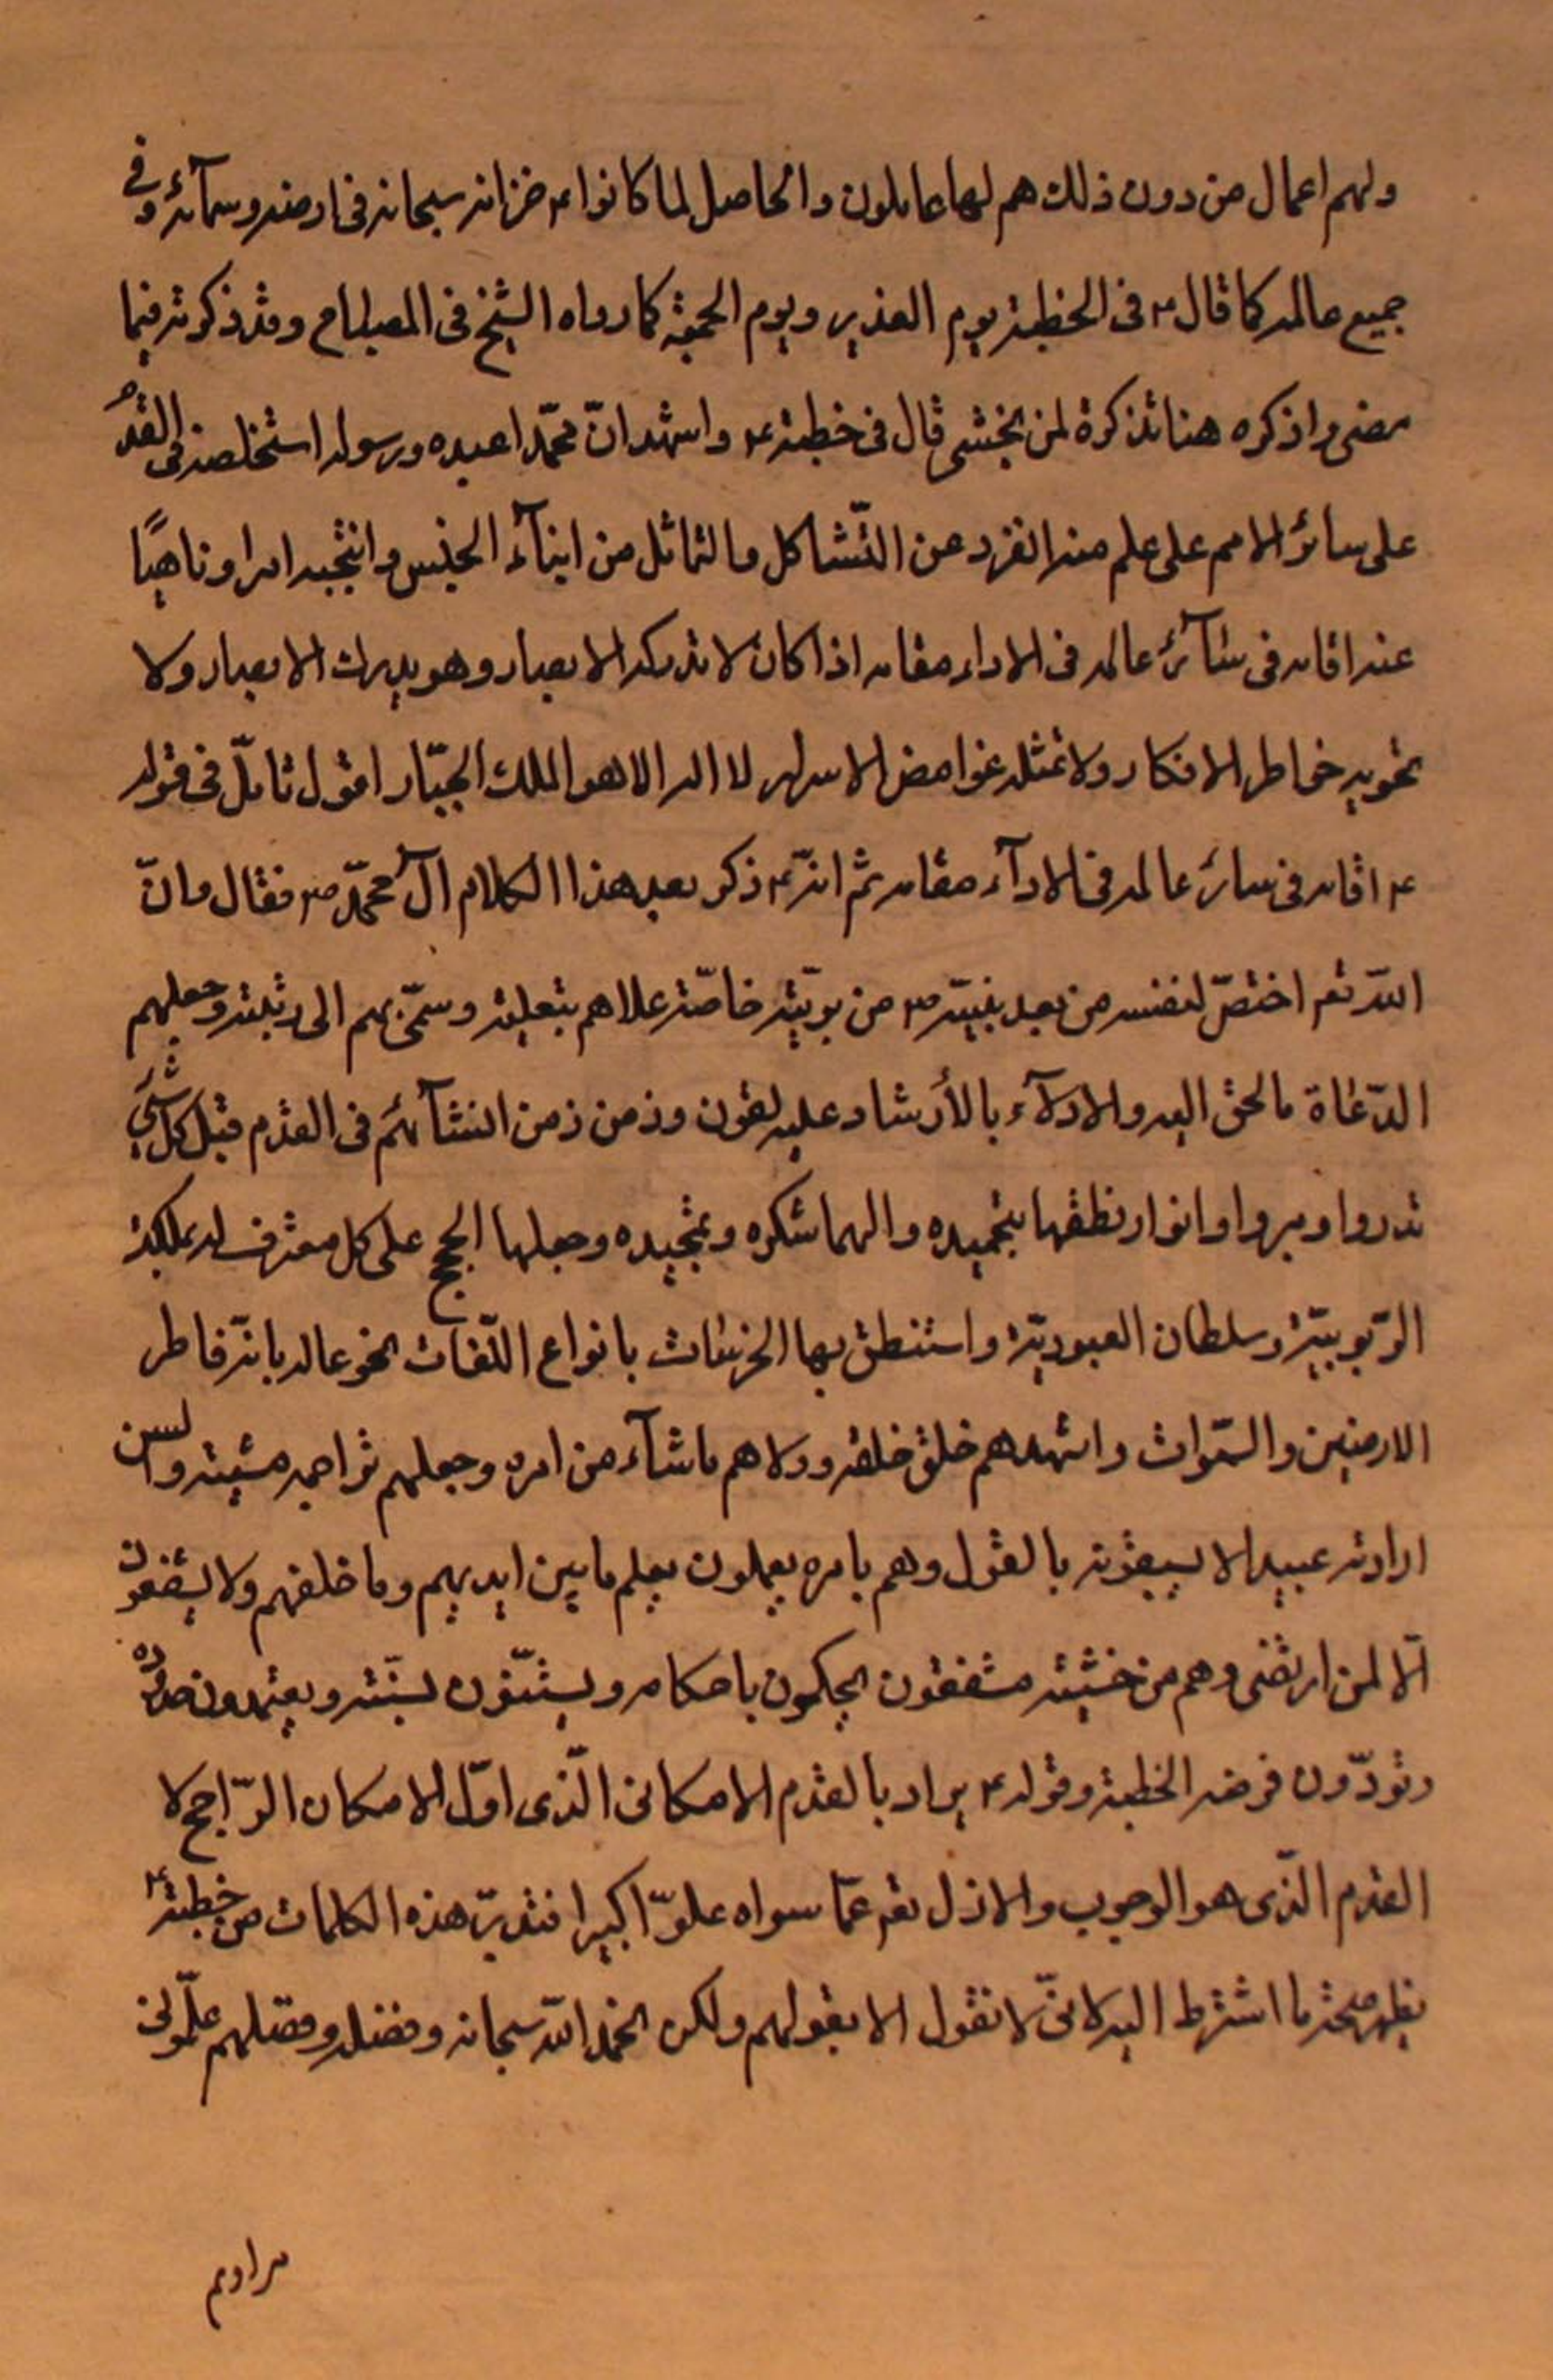 ولهم اعمال من دون ذلك هم لها عاملون والحاصل لما كانوا ع خزانه سبحانه فى ارضه وسمآئه وفى
جميع عالمه كما قال ع فى الخطبة يوم الغدير ويوم الجمعة كما رواه الشيخ فى المصباح وقد ذكرته فيما
مضى واذكره هنا تذكرة لمن يخشى قال فى خطبته ع واشهد انّ محمّدا عبده ورسوله استخلصه فى القدم
على سائر الامم على علم منه انفرد عن التّشاكل والتماثل من ابنآء الجنس وانتجبه امرا وناهيًا
عنه اقامه فى سآئر عالمه فى الاداء مقامه اذا كان لا تدركه الابصار وهو يدرك الابصار ولا
تحويه خواطر الافكار ولا تمثله غوامض الاسرار لا اله الا هو الملك الجبّار اقول تامّل فى قوله
ع اقامه فى سائر عالمه فى الادآء مقامه ثم انّه ع ذكر بعد هذا الكلام آل محمّد ص فقال وانّ
اللّه تعم اختصّ لنفسه من بعد نبيّه ص من بريّته خاصّة علاهم بتعليته وسمّى بهم الى رتبته وجعلهم
الدّعاة بالحق اليه والادلآء بالأرشاد عليه لقرن وزمن زمن انشآئهم فى القدم قبل كل شئ
مذروا ومبروا وانوار نطقها بتحميده والهما شكره وتمجيده وجعلها الحجج على كل معترف له بملكة
الرّبوبيّة وسلطان العبوديّة واستنطق بها الخرسات بانواع اللّغات بخوعا له بانّه فاطر
الارضين والسّموات واشهدهم خلق خلقه وولاهم ماشآء من امره وجعلهم تراجمه مشيته والسن
ارادته عبيدا لا يسبقونه بالقول وهم بامره يعملون يعلم ما بين ايديهم وما خلفهم ولا يشفعون
الّا لمن ارتضى وهم من خشيته مشفقون يحكمون باحكامه ويستنّون بسنّته ويعتمدون حدوده
ويؤدّون فرضه الخطبة وقوله ع يراد بالقدم الامكانى الّذى اوّل الامكان الرّاجح لا
القدم الّذى هو الوجوب والازل تعم عمّا سواه علوّا كبيرا فتدبّر هذه الكلمات من خطبته ع
يظهر صحة ما اشترط اليه لانّى لا نقول الا بقولهم ولكن الحمد اللّه سبحانه وفضله وفضلهم علّمونى
مرادهم